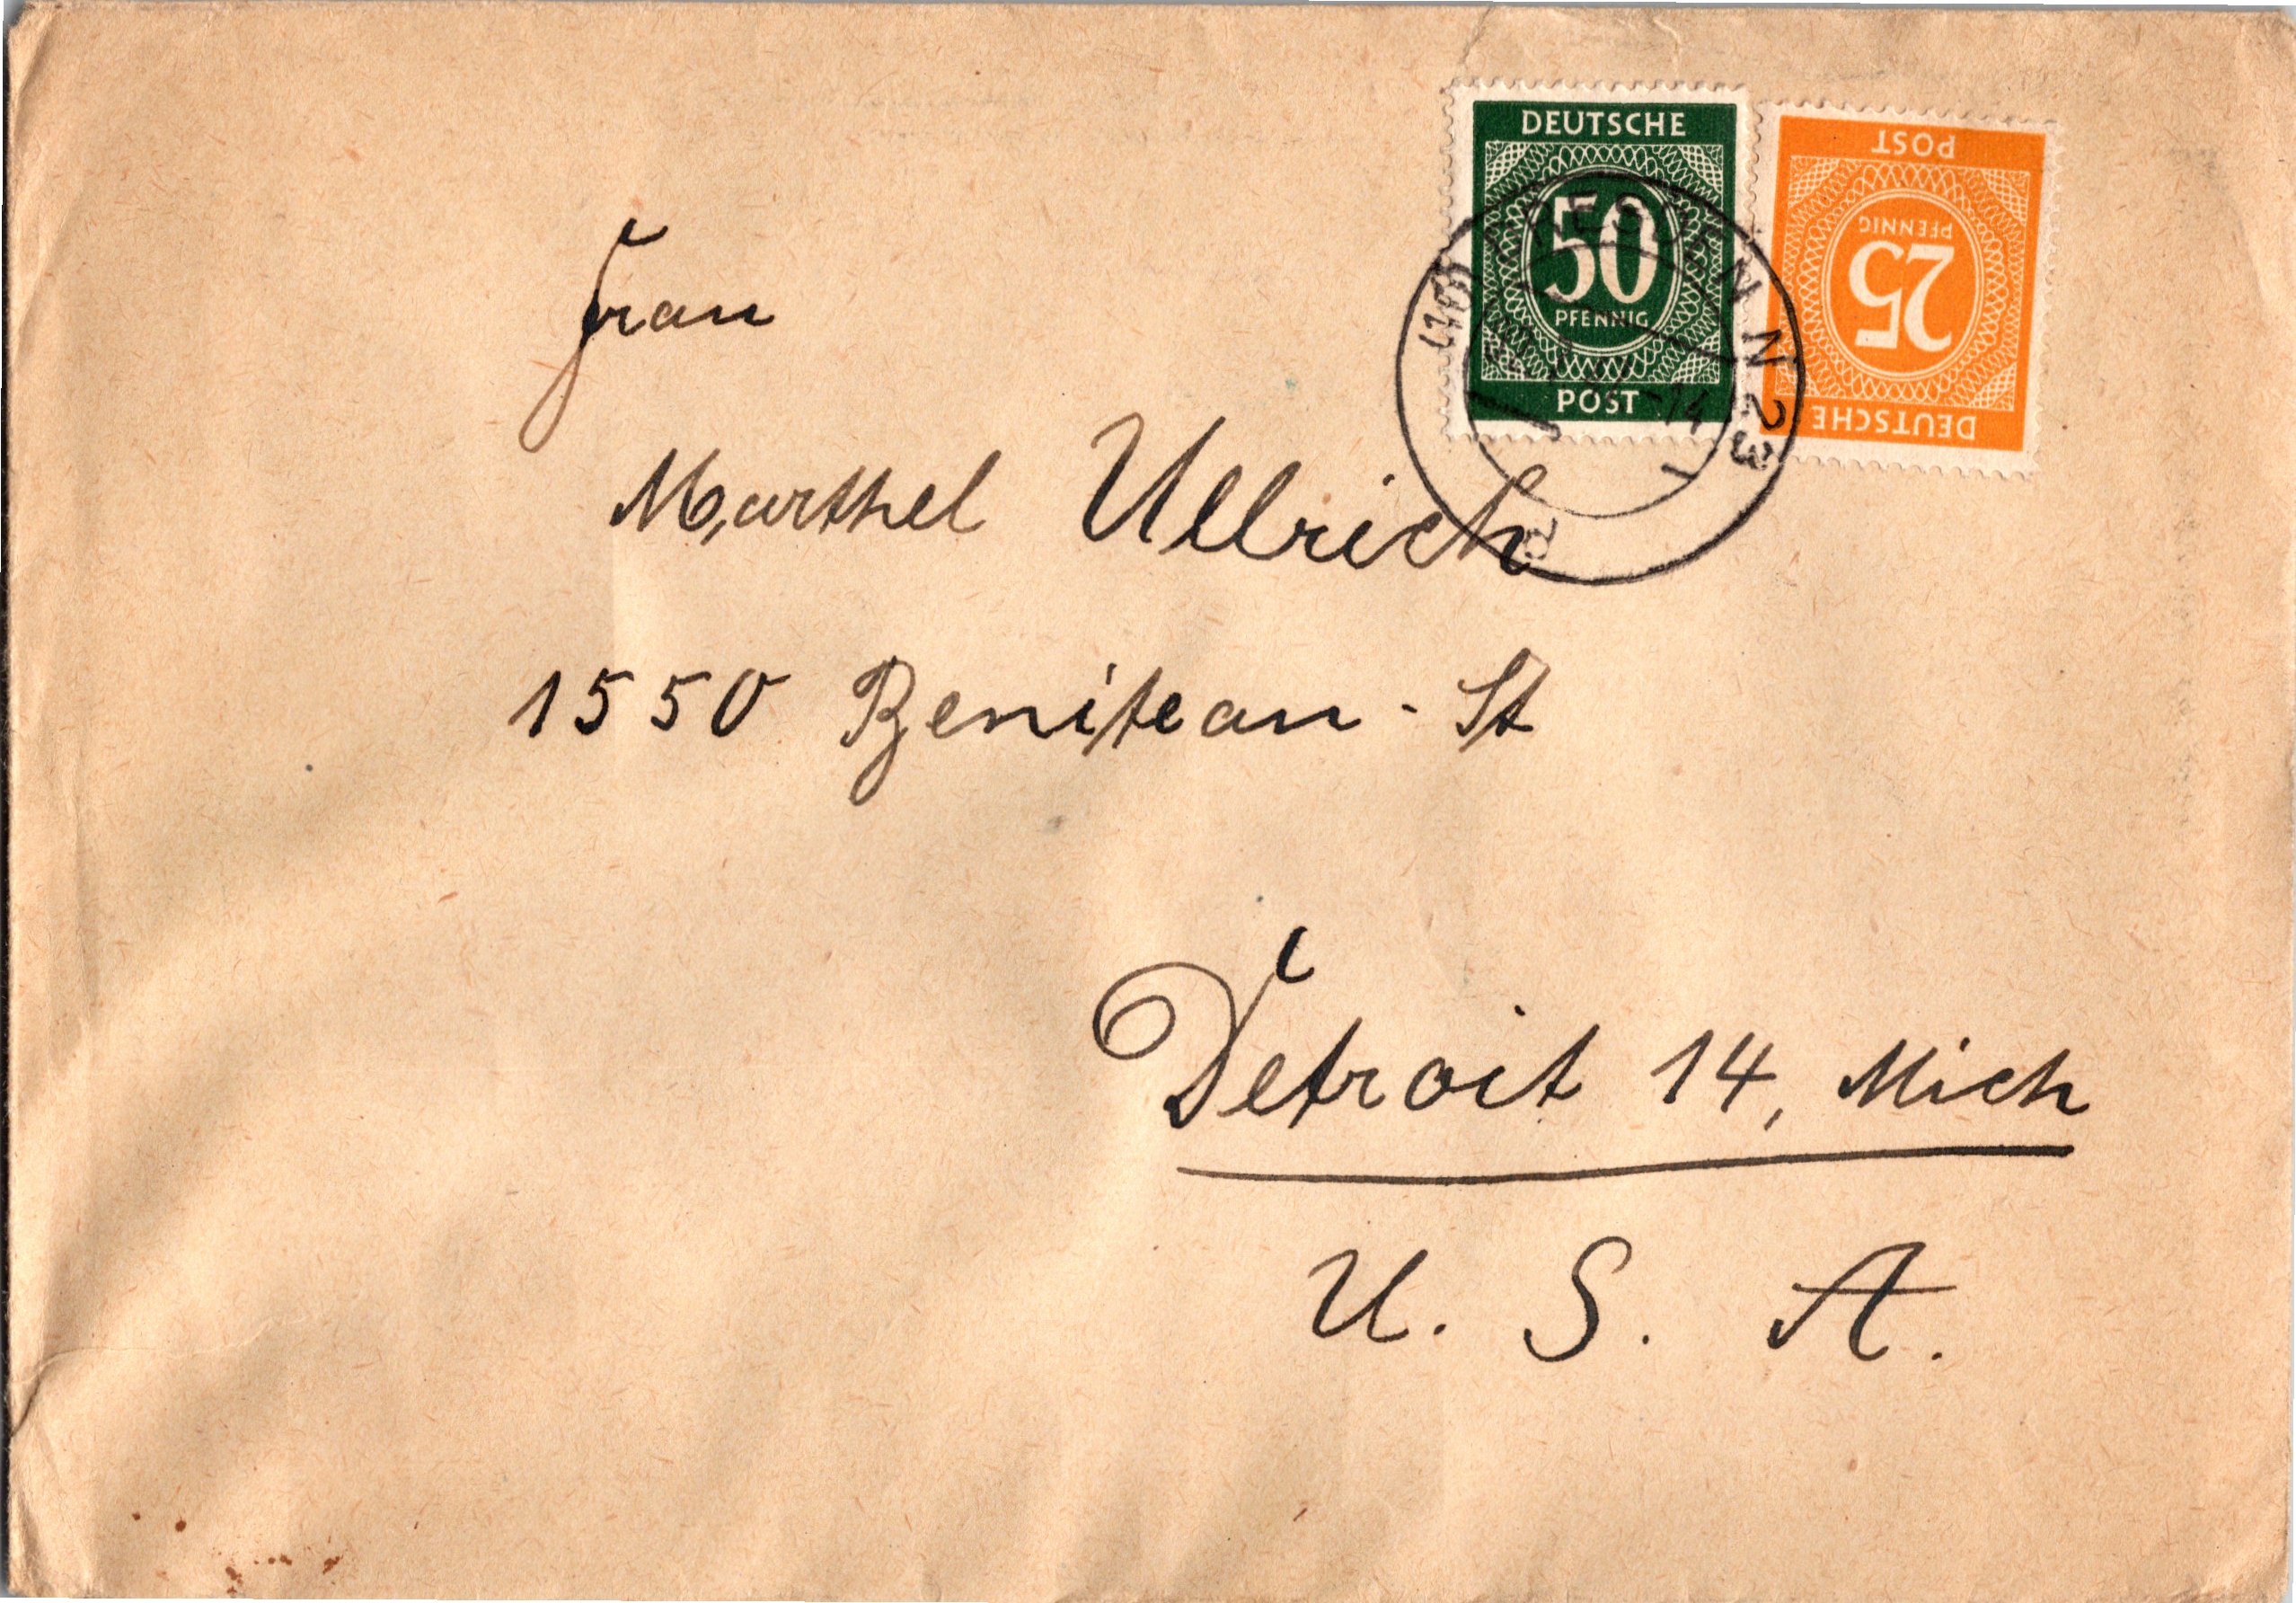 DEUTSCHE
50
PFENNIG
POST
DEUTSCHE
25
PFENNIG
POST
DRESDEN N 23
Frau
Marthel Ullrich
1550 Beniteau-St
Detroit 14, Mich
U. S. A.